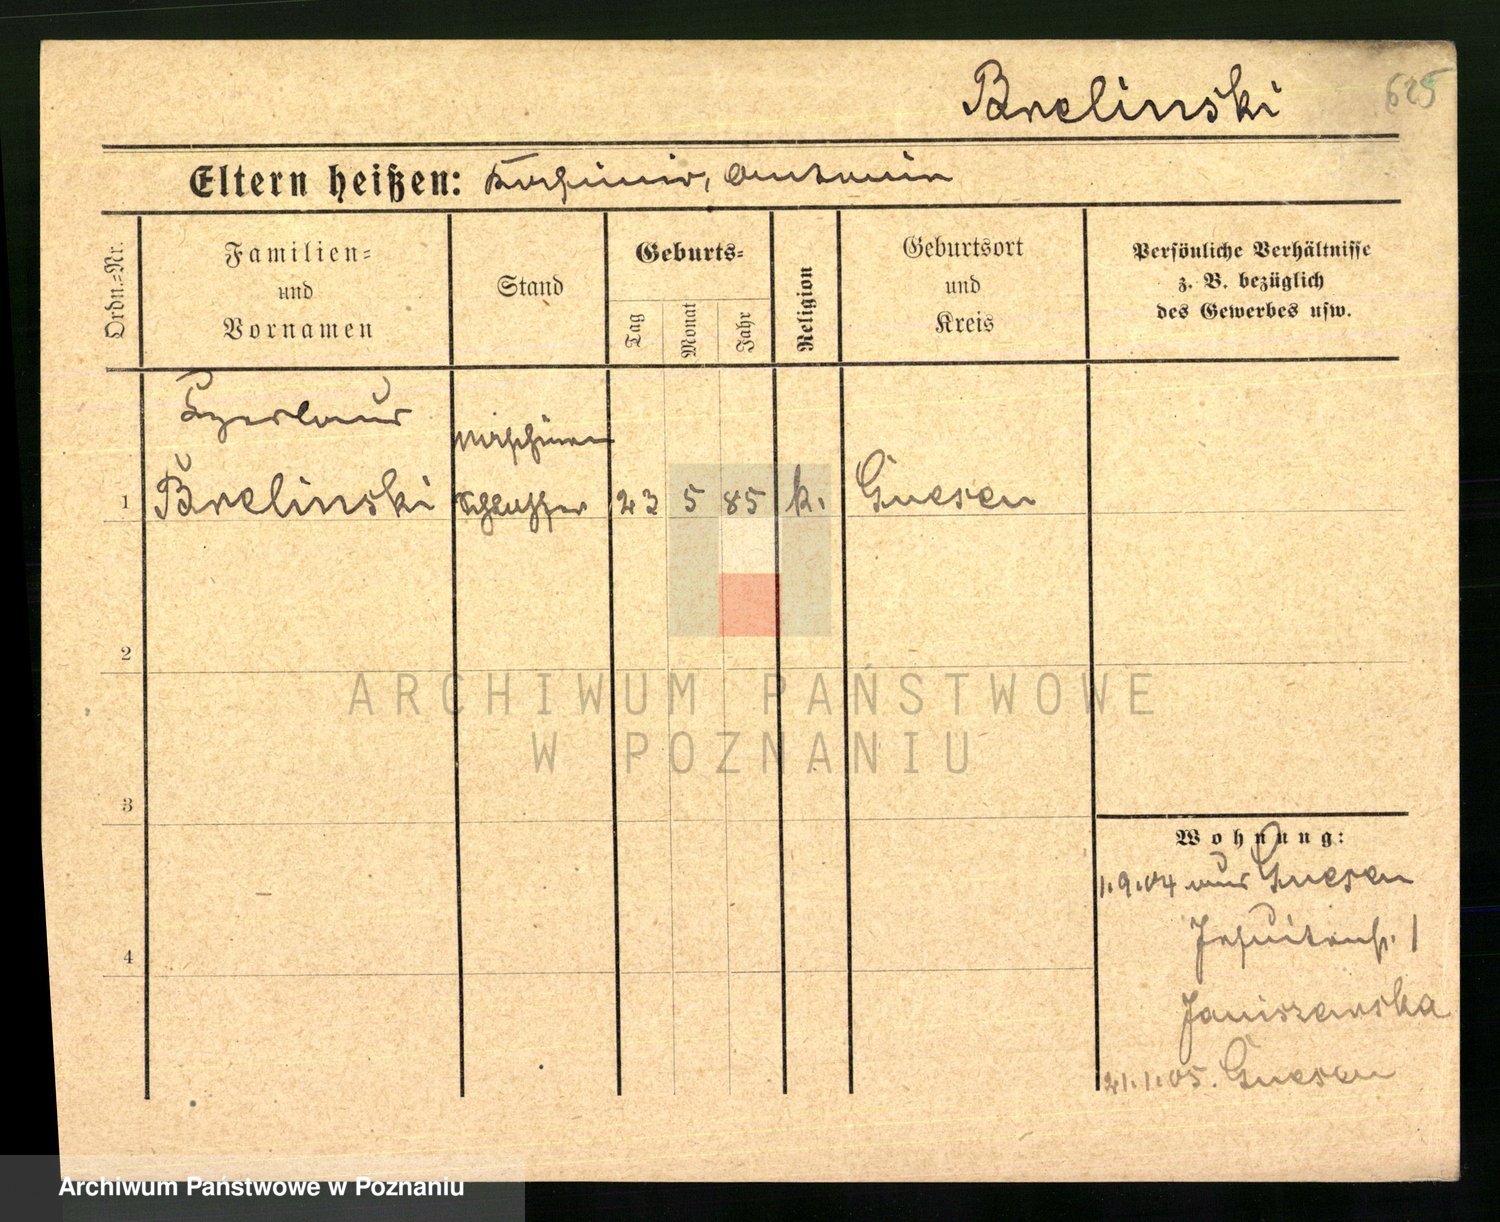 Brelinski 625
Eltern heißen: Kasimir, Antonie
Ordn.=Nr.
Familien=
und
Vornamen
Stand
Geburts=
Tag
Monat
Jahr
Religion
Geburtsort
und
Kreis
Persönliche Verhältnisse
z. B. bezüglich
des Gewerbes usw.
Maschinen
1 Brelinski Schlosser 23 5 85 k. Gnesen
2
3
4
Wohnung:
1.9.04 aus Gnesen
Jesuitenstr. 1
Janiszewska
21.1.05. Gnesen
ARCHIWUM PAŃSTWOWE
W POZNANIU
Archiwum Państwowe w Poznaniu